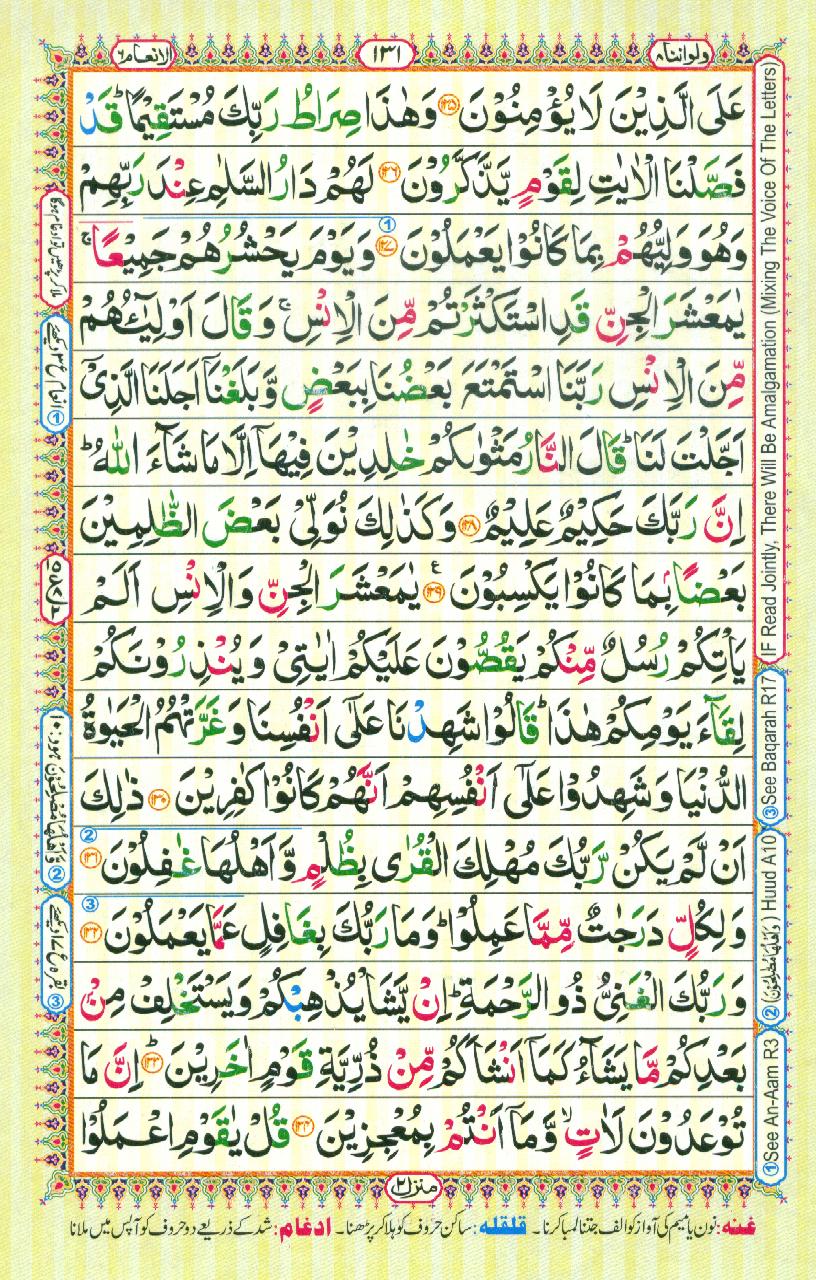 ولواننا ٨
١٣١
الانعام ٦
عَلَى الَّذِيْنَ لَا يُؤْمِنُوْنَ ﴿١٢٥﴾ وَهٰذَا صِرَاطُ رَبِّكَ مُسْتَقِيْمًا ؕ قَدْ
فَصَّلْنَا الْاٰيٰتِ لِقَوْمٍ يَّذَّكَّرُوْنَ ﴿١٢٦﴾ لَهُمْ دَارُ السَّلٰمِ عِنْدَ رَبِّهِمْ
وَهُوَ وَلِيُّهُمْ بِمَا كَانُوْا يَعْمَلُوْنَ ﴿١٢٧﴾ وَيَوْمَ يَحْشُرُهُمْ جَمِيْعًا ۚ
يٰمَعْشَرَ الْجِنِّ قَدِ اسْتَكْثَرْتُمْ مِّنَ الْاِنْسِ ۚ وَقَالَ اَوْلِيٰٓـُٔهُمْ
مِّنَ الْاِنْسِ رَبَّنَا اسْتَمْتَعَ بَعْضُنَا بِبَعْضٍ وَّبَلَغْنَاۤ اَجَلَنَا الَّذِىْۤ
اَجَّلْتَ لَنَا ؕ قَالَ النَّارُ مَثْوٰىكُمْ خٰلِدِيْنَ فِيْهَاۤ اِلَّا مَا شَآءَ اللّٰهُ ؕ
اِنَّ رَبَّكَ حَكِيْمٌ عَلِيْمٌ ﴿١٢٨﴾ وَكَذٰلِكَ نُوَلِّىْ بَعْضَ الظّٰلِمِيْنَ
بَعْضًۢا بِمَا كَانُوْا يَكْسِبُوْنَ ﴿١٢٩﴾ ع يٰمَعْشَرَ الْجِنِّ وَالْاِنْسِ اَلَمْ
يَاْتِكُمْ رُسُلٌ مِّنْكُمْ يَقُصُّوْنَ عَلَيْكُمْ اٰيٰتِىْ وَيُنْذِرُوْنَكُمْ
لِقَآءَ يَوْمِكُمْ هٰذَا ؕ قَالُوْا شَهِدْنَا عَلٰٓى اَنْفُسِنَا وَغَرَّتْهُمُ الْحَيٰوةُ
الدُّنْيَا وَشَهِدُوْا عَلٰٓى اَنْفُسِهِمْ اَنَّهُمْ كَانُوْا كٰفِرِيْنَ ﴿١٣٠﴾ ذٰلِكَ
اَنْ لَّمْ يَكُنْ رَّبُّكَ مُهْلِكَ الْقُرٰى بِظُلْمٍ وَّاَهْلُهَا غٰفِلُوْنَ ﴿١٣١﴾
وَلِكُلٍّ دَرَجٰتٌ مِّمَّا عَمِلُوْا ؕ وَمَا رَبُّكَ بِغَافِلٍ عَمَّا يَعْمَلُوْنَ ﴿١٣٢﴾
وَرَبُّكَ الْغَنِىُّ ذُو الرَّحْمَةِ ؕ اِنْ يَّشَاْ يُذْهِبْكُمْ وَيَسْتَخْلِفْ مِنْۢ
بَعْدِكُمْ مَّا يَشَآءُ كَمَاۤ اَنْشَاَكُمْ مِّنْ ذُرِّيَّةِ قَوْمٍ اٰخَرِيْنَ ﴿١٣٣﴾ ؕ اِنَّ مَا
تُوْعَدُوْنَ لَاٰتٍ ۙ وَّمَاۤ اَنْتُمْ بِمُعْجِزِيْنَ ﴿١٣٤﴾ قُلْ يٰقَوْمِ اعْمَلُوْا
منزل ٢
غنه: نون یا میم کی آواز کو الف جتنا لمبا کرنا۔ قلقله: ساکن حروف کو ہلا کر پڑھنا۔ ادغام: شد کے ذریعے دو حروف کو آپس میں ملانا
①See An-Aam R3
② (وَاَهْلُهَا مُصْلِحُوْنَ) Huud A10
③See Baqarah R17
(IF Read Jointly, There Will Be Amalgamation (Mixing The Voice Of The Letters)